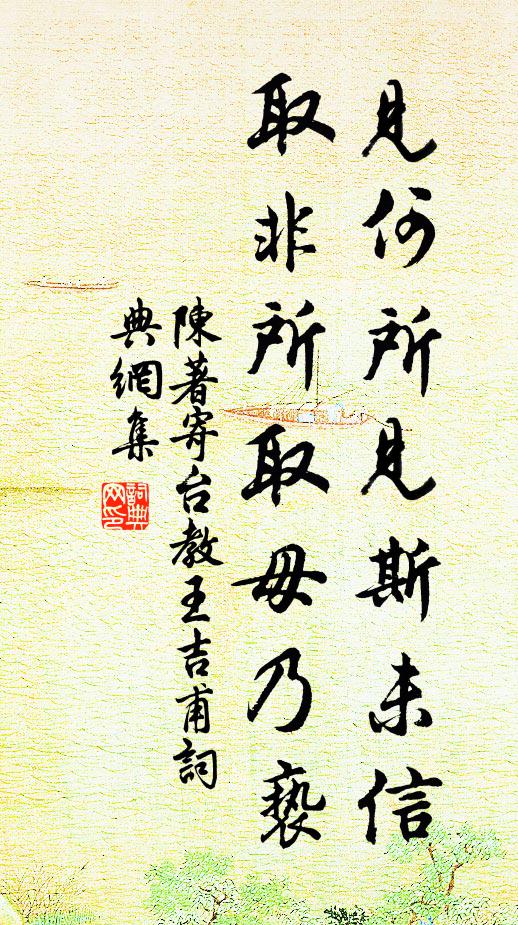 見何所見斯未信
取非所取毋乃褻
陳著寄台教王吉甫詞
典網集
詞典
网印